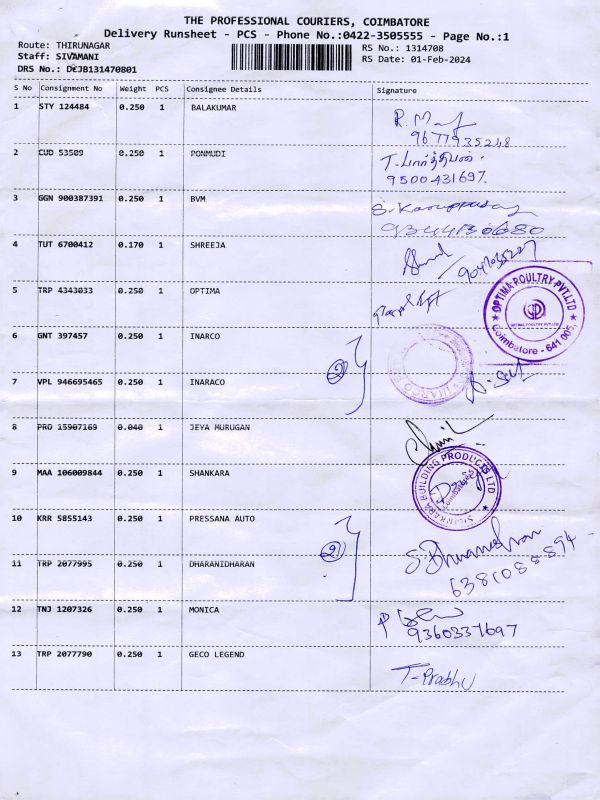 THE PROFESSIONAL COURIERS, COIMBATORE
Delivery Runsheet - PCS - Phone No.:0422-3505555 - Page No.:1
Route: THIRUNAGAR
RS No.: 1314708
Staff: SIVAMANI
RS Date: 01-Feb-2024
DRS No.: DCJB131470801
S No Consignment No Weight PCS Consignee Details Signature
1 STY 124484 0.250 1 BALAKUMAR
9677935248
2 CUD 53509 0.250 1 PONMUDI
9500431697.
3 GGN 900387391 0.250 1 BVM
9344130680
4 TUT 6700412 0.170 1 SHREEJA
5 TRP 4343033 0.250 1 OPTIMA
OPTIMA POULTRY PVT.LTD
OPTIMA POULTRY PVT.LTD
Coimbatore - 641 005.
6 GNT 397457 0.250 1 INARCO
2
7 VPL 946695465 0.250 1 INARACO
8 PRO 15907169 0.040 1 JEYA MURUGAN
9 MAA 106009844 0.250 1 SHANKARA
SHANKARA BUILDING PRODUCTS LTD
Coimbatore
10 KRR 5855143 0.250 1 PRESSANA AUTO
2
11 TRP 2077995 0.250 1 DHARANIDHARAN
6381088894
12 TNJ 1207326 0.250 1 MONICA
9360337697
13 TRP 2077790 0.250 1 GECO LEGEND
T-Prabhu